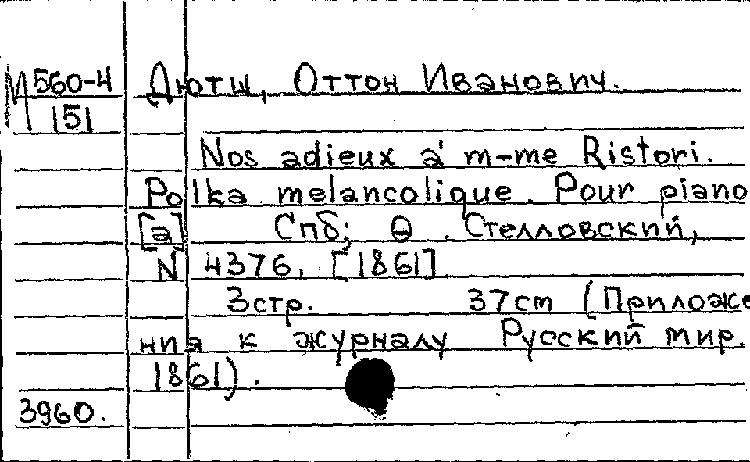 М 560-4 Дютш, Оттон Иванович.
151
Nos adieux à m-me Ristori.
Polka melancolique. Pour piano
[а] Спб; Ѳ. Стелловский,
N 4376, [1861]
3стр. 37cm (Приложе
ния к журналу Русский мир.
1861).
3960.